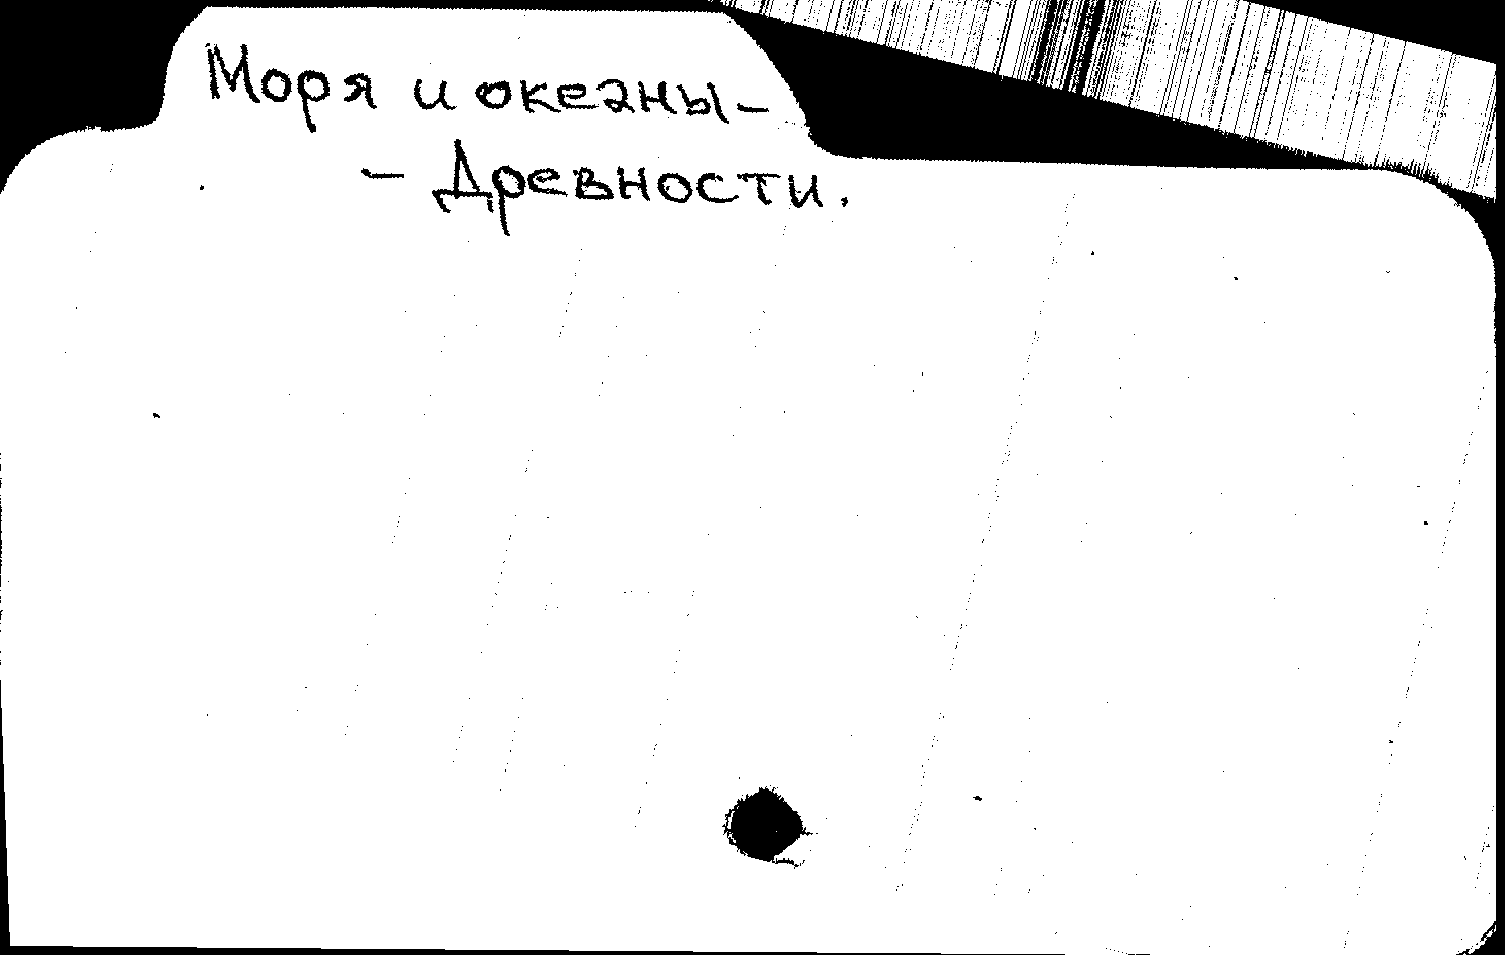 Моря и океаны –
– Древности.